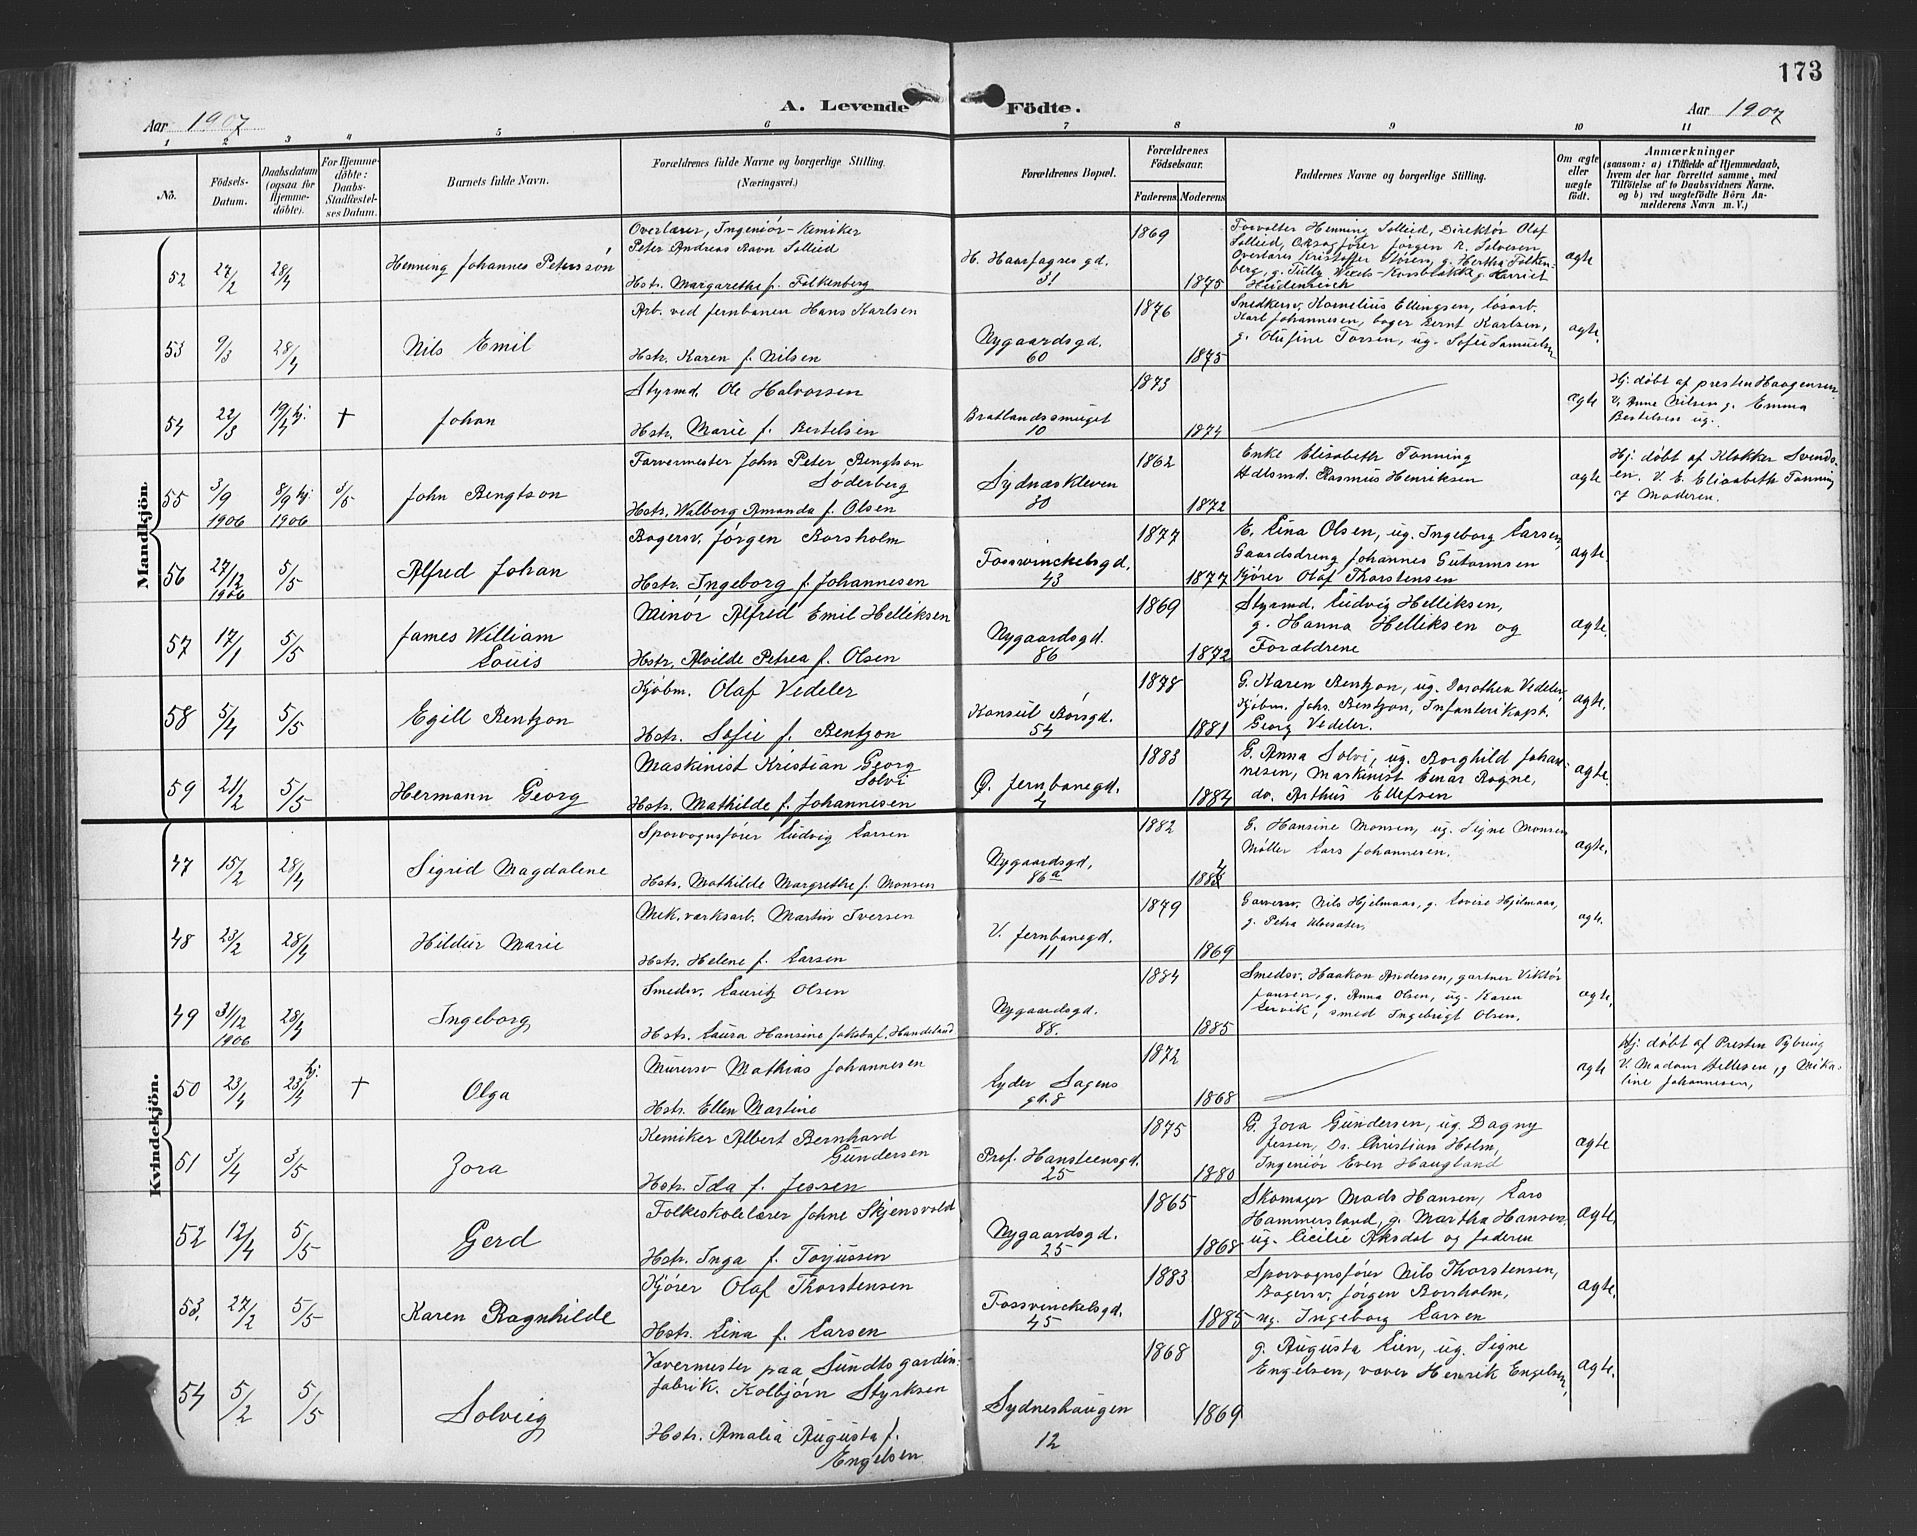 173
A. Levende Födte.
Aar 1907
Aar 1907
1 2 3 4 5 6 7 8 9 10 11
No.
Födsels-Datum.
Daabsdatum (ogsaa for Hjemme-döbte).
For Hjemme-döbte: Daabs-Stadfæstel-ses Datum.
Barnets fulde Navn.
Forældrenes fulde Navne og borgerlige Stilling.
(Næringsvei.)
Forældrenes Bopæl.
Forældrenes Födselsaar.
Faderens Moderens
Faddernes Navne og borgerlige Stilling.
Om ægte eller uægte födt.
Anmærkninger
(saasom: a) i Tilfælde af Hjemmedaab,
hvem der har forrettet samme, med
Tilföielse af to Daabsvidners Navne,
og b) ved uægtefödte Börn An-
melderens Navn m. V.)
Mandkjön
52 27/2 28/4 Henning Johannes Peterssøn
Overlærer, Ingeniør-Kemiker
Peter Andreas Ravn Sollied
Hstr. Margarethe f. Falkenberg
H. Haarfagresgd. 31
1869 1875
Forvalter Henning Sollied, Direktør Olaf
Sollied, Oksagfører Jørgen R. Solvesen
Overlærer Kristoffer Støren, g. Hertha Falken-
berg, g. Tully g. Harriet
Heidenreich
ægte
53 9/3 28/4 Nils Emil
Arb. ved Jernbanen Hans Karlsen
Hstr. Karen f. Nilsen
Nygaardsgd. 60
1876 1875
Snedkersv. Kornelius Ellingsen, løsarb.
Karl Johannesen, bager Bernt Karlsen,
g. Olufine Torsen, ug. Sofie Samuelsen
ægte.
54 22/3 19/4 hj. † Johan
Styrmd. Ole Halvorsen
Hstr. Marie f. Bertelsen
Bratlandssmuget 10
1873 1874
ægte
Hj. døbt af presten Haagensen
V. Anne Nilsen g. Emma
Bertelsen ug.
55 3/9 1906 8/9 hj. 1906 5/5 John Bengtson
Farvermester John Peter Bengtson
Søderberg
Hstr. Walborg Amanda f. Olsen
Sydnæskleven 30
1862 1872
Enke Elisabeth Tonning
Hdlsmd. Rasmus Henriksen
ægte
Hj. døbt af Klokker Svends-
en. V. E. Elisabeth Tonning
og Moderen.
56 27/12 1906 5/5 Alfred Johan
Bagersv. Jørgen Borsholm
Hstr. Ingeborg f. Johannesen
Fossvinckelsgd. 43
1877 1877
E. Lina Olsen, ug. Ingeborg Larsen,
Gaardsdreng Johannes Gutormsen
Kjører Olaf Thorstensen
ægte
57 17/1 5/5 James William Louis
Minør Alfred Emil Helliksen
Hstr. Alvilde Petrea f. Olsen
Nygaardsgd. 86
1869 1872
Styrmd. Ludvig Helliksen,
g. Hanna Helliksen og
Forældrene
ægte.
58 5/4 5/5 Egill Bentzon
Kjøbm. Olaf Vedeler
Hstr. Sofie f. Bentzon
Konsul Børsgd. 54
1878 1881
G. Karen Bentzon, ug. Dorothea Vedeler,
Kjøbm. Johs. Bentzon, Infanterikapt.
Georg Vedeler.
ægte.
59 21/2 5/5 Hermann Georg
Maskinist Kristian Georg
Solvi
Hstr. Mathilde f. Johannesen
Ø. Jernbanegd. 4
1883 1884
G. Anna Solvi, ug. Borghild Johan-
nesen, Maskinist Einar Rogne,
do. Arthur Ellefsen
ægte.
Kvindekjön.
47 15/2 28/4 Sigrid Magdalene
Sporvognsfører Ludvig Larsen
Hstr. Mathilde Margrethe f. Monsen
Nygaardsgd. 86a
1882 1884
E. Hansine Monsen, ug. Signe Monsen
Møller Lars Johannesen.
ægte.
48 23/2 28/4 Hildur Marie
Mek. værksarb. Martin Iversen
Hstr. Helene f. Larsen
V. Jernbanegd. 11
1879 1869
Garversv. Nils Hjelmaas, g. Lovise Hjelmaas,
g. Petra Ulvesæter,
ægte.
49 31/12 1906 28/4 Ingeborg
Smedsv. Lauritz Olsen
Hstr. Laura Hansine Jakobaf. Handeland
Nygaardsgd. 88.
1884 1885
Smedsv. Haakon Andersen, gartner Viktor
Jansen, g. Anna Olsen, ug. Karen
Lervik, smed Ingebrigt Olsen.
ægte.
50 23/4 23/4 hj. † Olga
Murersv Mathias Johannesen
Hstr. Ellen Martine
Lyder Sagens gd. 8
1872 1868
ægte
Hj. døbt af Presten Rybring
V. Madam Hellesen, g Mika-
line Johannesen,
51 3/4 3/5 Zora
Kemiker Albert Bernhard
Gundersen
Hstr. Ida f. Jessen
Prof. Hansteensgd. 25
1875 1880
G. Zora Gundersen, ug. Dagny
Jessen, Dr. Christian Holm,
Ingeniør Even Haugland
ægte
52 12/4 5/5 Gerd
Folkeskolelærer Johne Skjensvold
Hstr. Inga f. Torjussen
Nygaardsgd. 25
1865 1868
Skomager Mads Hansen, Lars
Hammersland, g. Martha Hansen,
ug. Cicilie Aksdal og Faderen
ægte.
53. 27/2 5/5 Karen Ragnhilde
Kjører Olaf Thorstensen
Hstr. Lina f. Larsen
Fossvinckelsgd. 45
1883 1885
Sporvognsfører Nils Thorstensen,
Bagersv. Jørgen Borsholm,
ug. Ingeborg Larsen
ægte.
54 5/2 5/5 Solveig
Vævermester paa Sundts gardin-
fabrik. Kolbjørn Styrksen
Hstr. Amalia Augusta f.
Engelsen
Sydneshaugen 12
1868 1869
g. Augusta Lien, ug. Signe
Engelsen, væver Henrik Engelsen,
ægte.